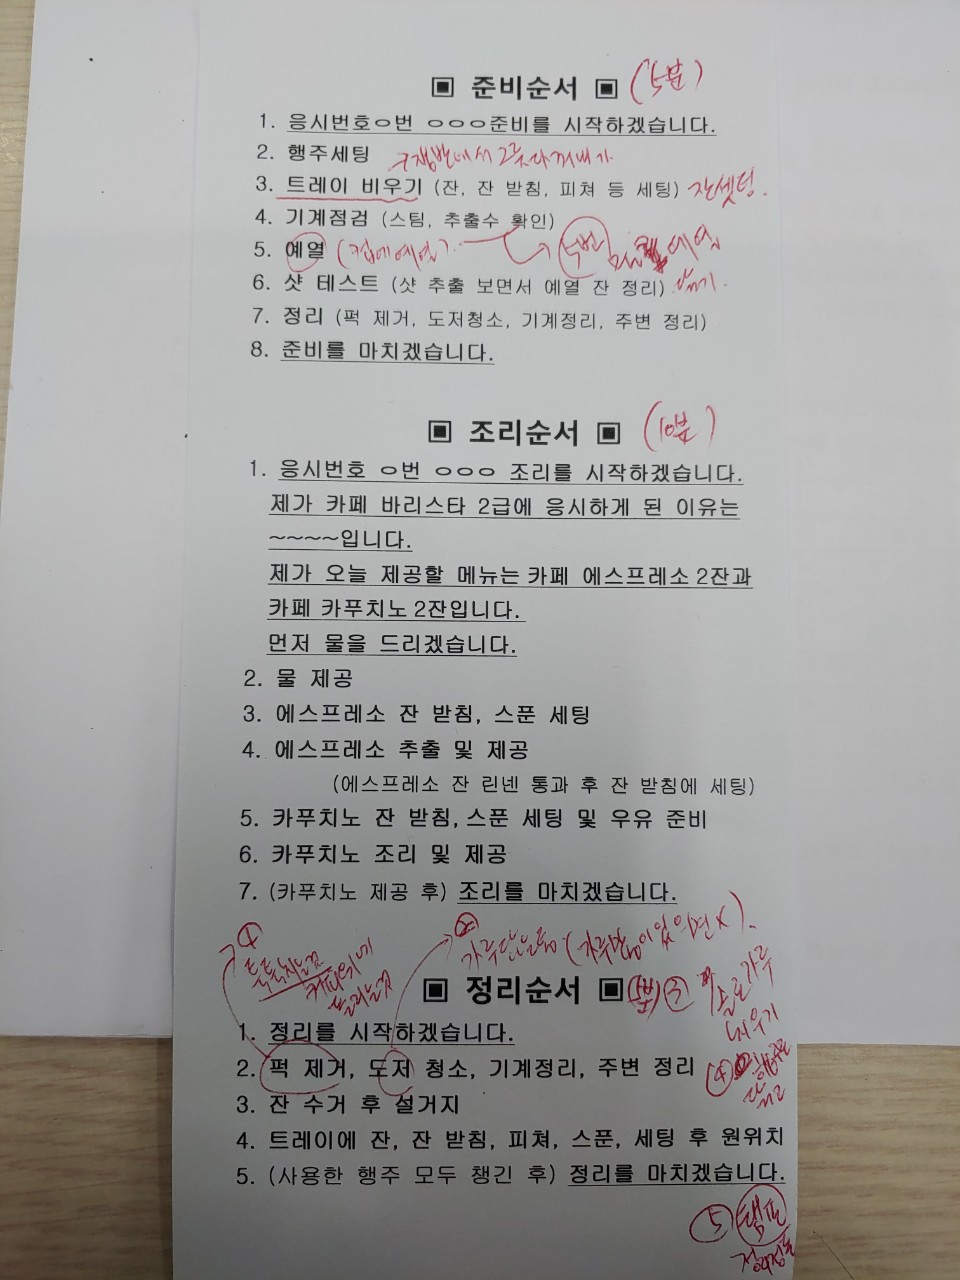 ▣ 준비순서 ▣ (5분)
1. 응시번호ㅇ번 ㅇㅇㅇ준비를 시작하겠습니다.
2. 행주세팅
3. 트레이 비우기 (잔, 잔 받침, 피쳐 등 세팅) 잔셋팅.
4. 기계점검 (스팀, 추출수 확인)
5. 예열 (컵에예열)
6. 샷 테스트 (샷 추출 보면서 예열 잔 정리)
7. 정리 (퍽 제거, 도저청소, 기계정리, 주변 정리)
8. 준비를 마치겠습니다.
▣ 조리순서 ▣ (10분)
1. 응시번호 ㅇ번 ㅇㅇㅇ 조리를 시작하겠습니다.
제가 카페 바리스타 2급에 응시하게 된 이유는
~~~~입니다.
제가 오늘 제공할 메뉴는 카페 에스프레소 2잔과
카페 카푸치노 2잔입니다.
먼저 물을 드리겠습니다.
2. 물 제공
3. 에스프레소 잔 받침, 스푼 세팅
4. 에스프레소 추출 및 제공
(에스프레소 잔 린넨 통과 후 잔 받침에 세팅)
5. 카푸치노 잔 받침, 스푼 세팅 및 우유 준비
6. 카푸치노 조리 및 제공
7. (카푸치노 제공 후) 조리를 마치겠습니다.
▣ 정리순서 ▣ (5분)
1. 정리를 시작하겠습니다.
2. 퍽 제거, 도저 청소, 기계정리, 주변 정리
3. 잔 수거 후 설거지
4. 트레이에 잔, 잔 받침, 피쳐, 스푼, 세팅 후 원위치
5. (사용한 행주 모두 챙긴 후) 정리를 마치겠습니다.
⑤ 탬퍼